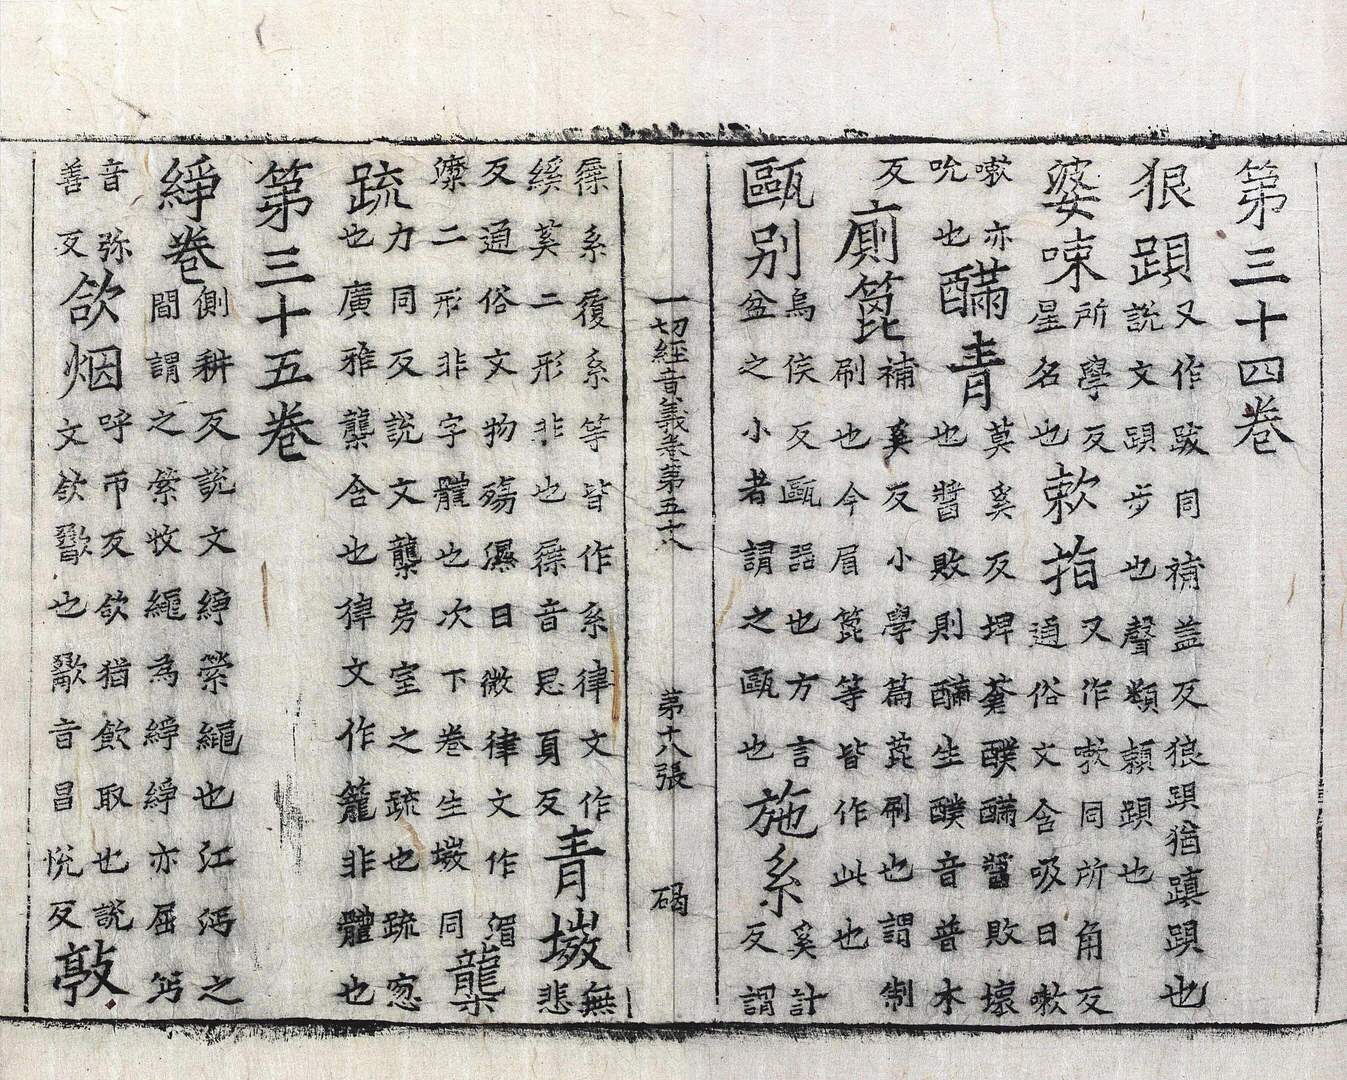 第三十四卷
狼䟺又作跋同補蓋反狼䟺猶蹎䟺也說文䟺步也聲類頼䟺也
婆㖨所學反星名也敕指又作嗽同所角反通俗文含吸曰嗽
嗽亦吮也䤅青莫奚反埤蒼醭䤅醬敗壞也醬敗則䤅生醭音普木
反廁篦補奚反小學篇篦刷也謂制刷也今眉篦等皆作此也
甌別烏侯反甌器也方言盆之小者謂之甌也施系奚計反謂
一切經音義卷第五十八 第十八張 碣
屧系覆系等皆作系律文作縘蒵二形非也屧音思頁反青黴無悲
反通俗文物殤濕曰微律文作湄二形非字體也次下卷生黴同櫳
疏力同反說文櫳房室之疏也疏窓也廣雅櫳舍也律文作籠非體也
第三十五卷
綪卷側耕反說文綪縈繩也江沔之間謂之縈收繩為綪綪亦屈沔
音弥善反欱烟呼帀反欱猶飲取也說文欱歠也歠音昌悅反敦